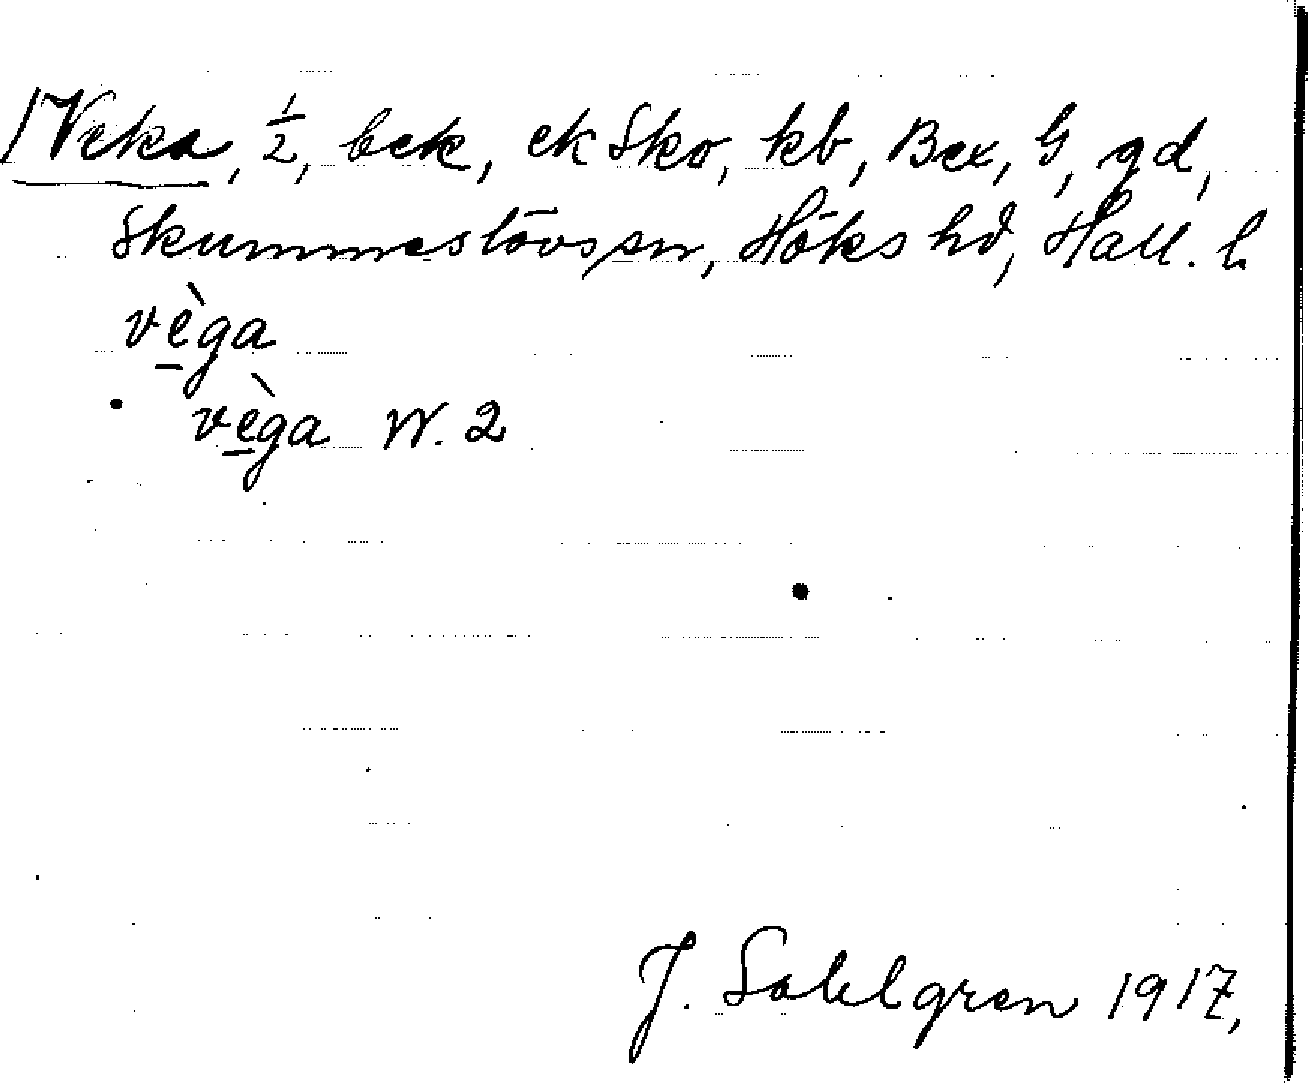 /Veka, 1/2, bek, ek Sko, kb, Bex, G, gd,
Skummeslövs sn, Höks hd, Hall. l.
vèga
vèga W. 2
J. Sahlgren 1917,